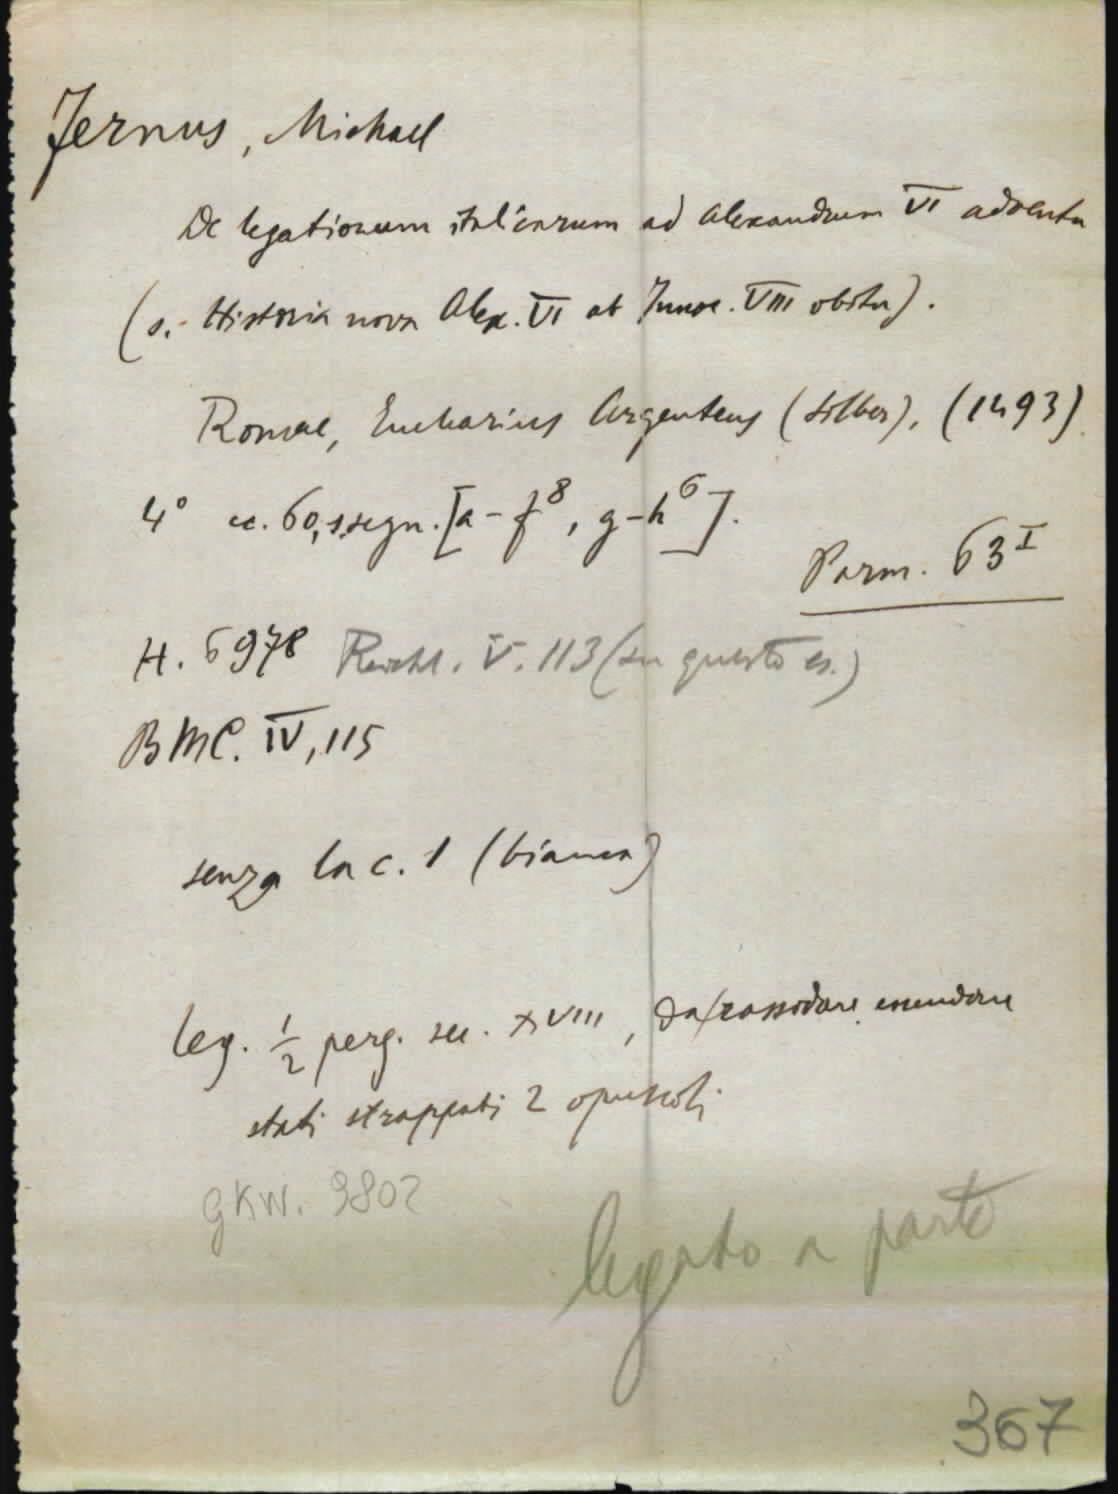 Fernus, Michael
De legationum italicarum ad Alexandrum VI adventu
(s. Historia nova Alex. VI ab Innoc. VIII obitu).
Romae, Eucharius Argenteus (Silber), (1493)
4° cc. 60, s.segn. [a-f⁸, g-h⁶].
Parm. 63ᴵ
H. 6978 Reichl. V. 113 (su questo es.)
BMC. IV, 115
senza la c. 1 (bianca)
leg. ½ perg. sec. XVIII, da rassodare essendone
stati strappati 2 opuscoli
GKW. 9802
legato a parte
367